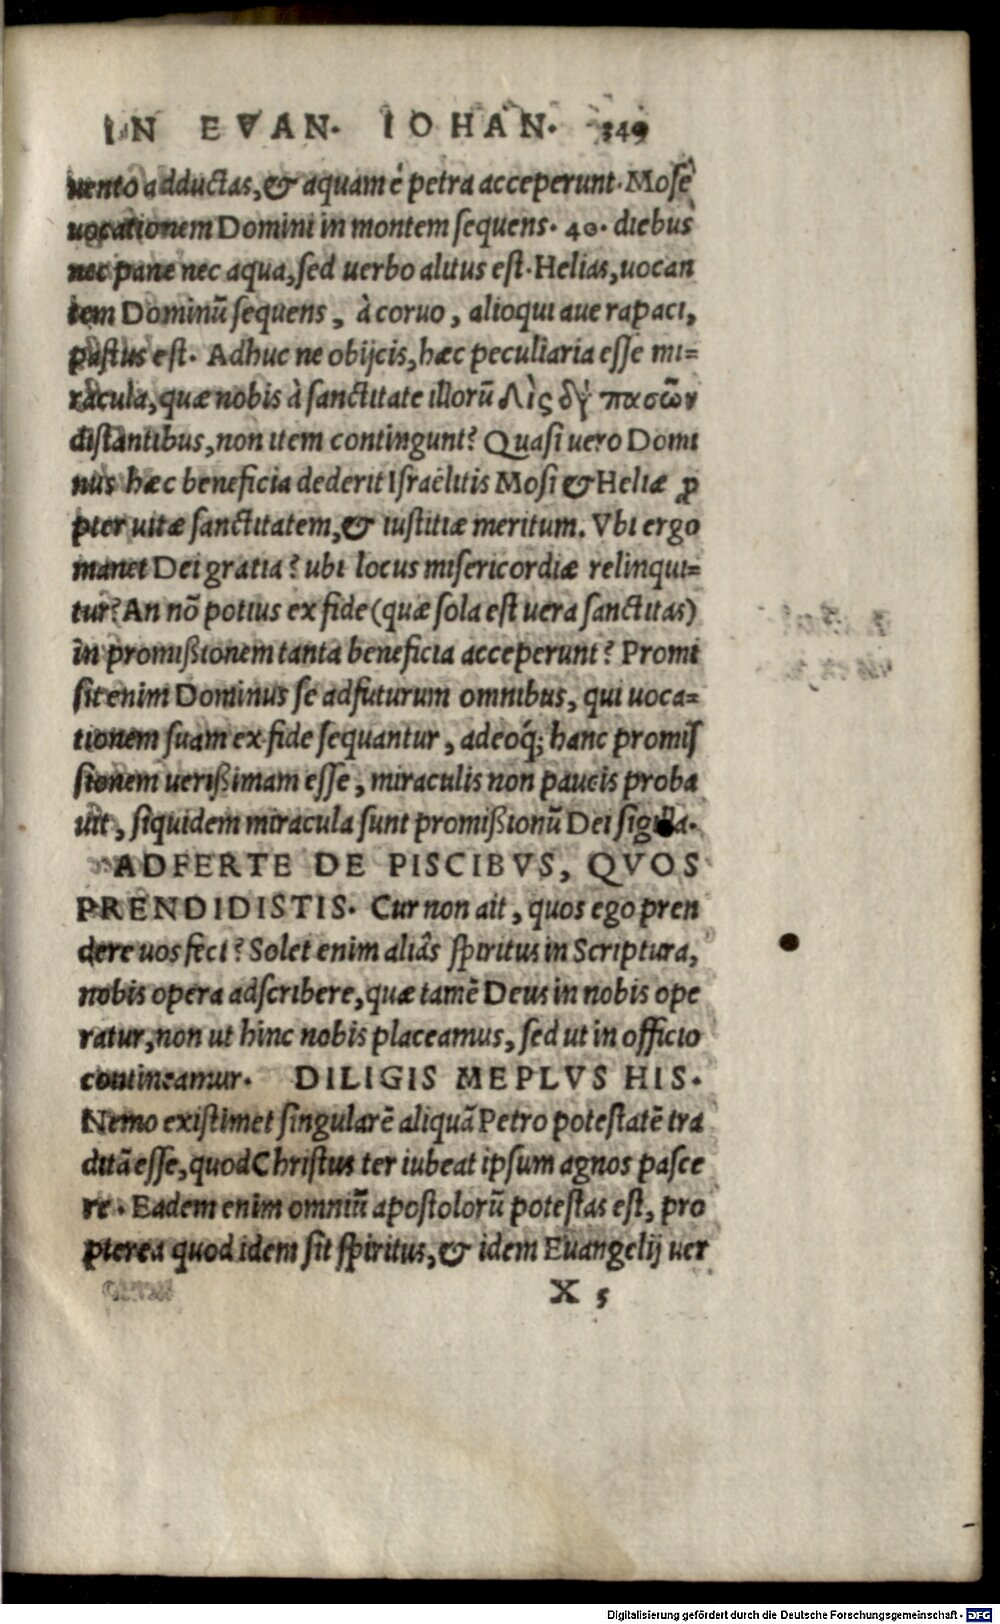 IN EVAN. IOHAN. 349
uento adductas, & aquam è petra acceperunt. Mose
uocationem Domini in montem sequens. 40. diebus
nec pane nec aqua, sed uerbo alitus est. Helias, uocan
tem Dominũ sequens, à coruo, alioqui aue rapaci,
pastus est. Adhuc ne obijcis, hæc peculiaria esse mi=
racula, quæ nobis à sanctitate illorũ δὶς δ𝜄ὰ πασῶν
distantibus, non item contingunt? Quasi uero Domi
nus hæc beneficia dederit Israëlitis Mosi & Heliæ ꝓ
pter uitæ sanctitatem, & iustitiæ meritum. Vbi ergo
manet Dei gratia? ubi locus misericordiæ relinqui=
tur? An nõ potius ex fide (quæ sola est uera sanctitas)
in promißionem tanta beneficia acceperunt? Promi
sit enim Dominus se adfuturum omnibus, qui uoca=
tionem suam ex fide sequantur, adeoq́; hanc promis
sionem uerißimam esse, miraculis non paucis proba
uit, siquidem miracula sunt promißionũ Dei sigilla.
ADFERTE DE PISCIBVS, QVOS
PRENDIDISTIS. Cur non ait, quos ego pren
dere uos feci? Solet enim aliâs spiritus in Scriptura,
nobis opera adscribere, quæ tamẽ Deus in nobis ope
ratur, non ut hinc nobis placeamus, sed ut in officio
contineamur. DILIGIS ME PLVS HIS.
Nemo existimet singularẽ aliquã Petro potestatẽ tra
ditã esse, quod Christus ter iubeat ipsum agnos pasce
re. Eadem enim omniũ apostolorũ potestas est, pro
pterea quod idem sit spiritus, & idem Euangelij uer
X 5
Digitalisierung gefördert durch die Deutsche Forschungsgemeinschaft - DFG